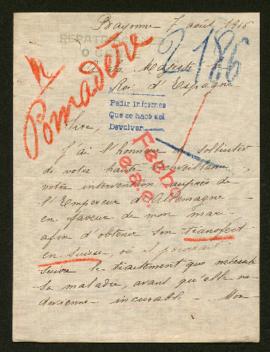 Bayonne 7 août 1916
2186
A Sa Majesté le
Roi d'Espagne
Pomadère
Pedir informes
Que se hace así
Devolver
Sire,
J'ai l'honneur solliciter
de votre haute bienveillance
votre intervention auprès de
l'Empereur d'Allemagne
en faveur de mon mari
afin d'obtenir son transfert
en Suisse, où il pourrait
suivre le traitement que nécessite
sa maladie, avant qu'elle ne
devienne incurable. Mon